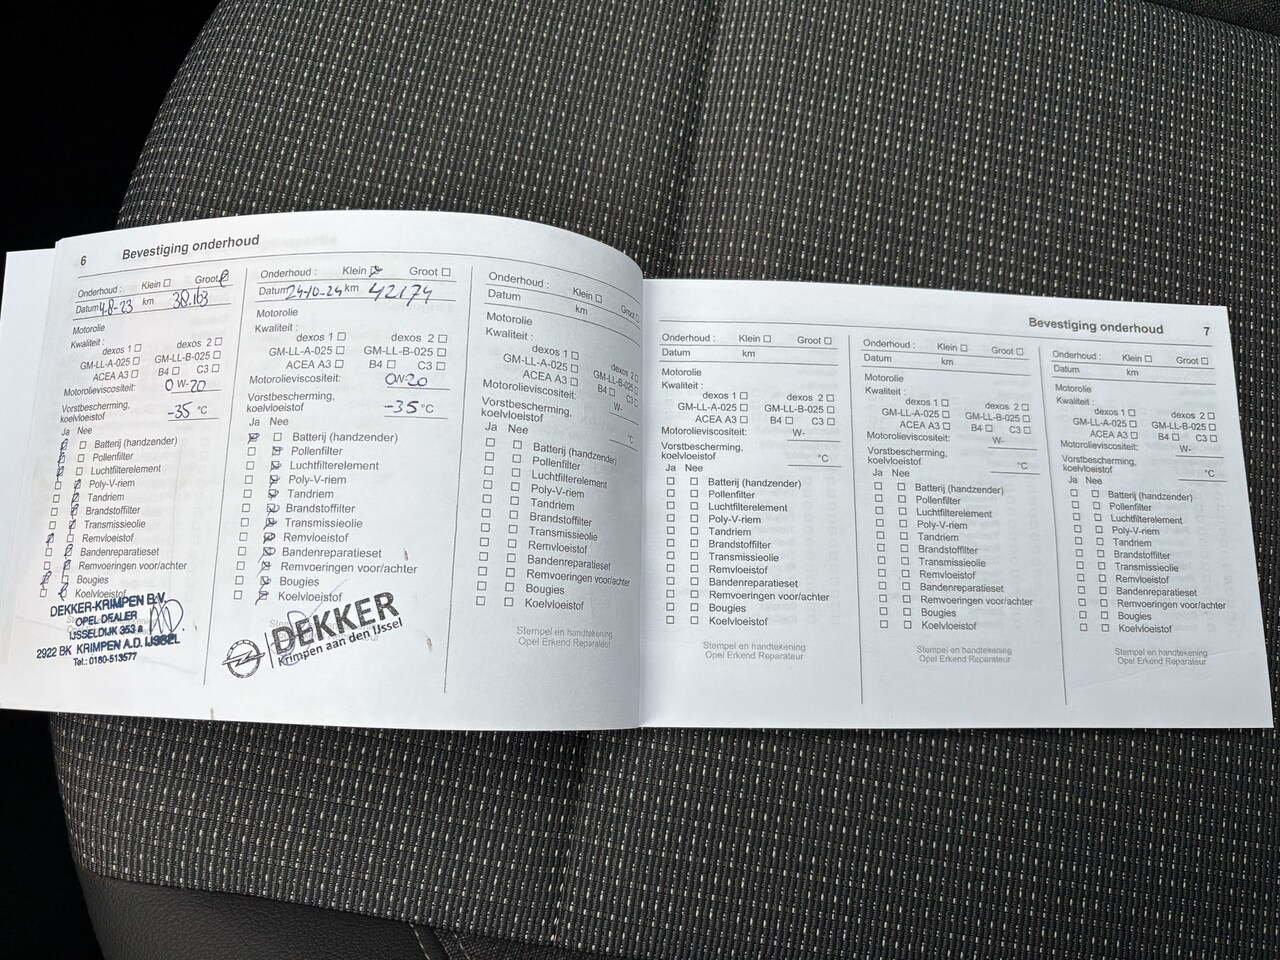 6 Bevestiging onderhoud
Onderhoud : Klein Groot
Datum 4-8-23 km 38.163
Motorolie
Kwaliteit :
dexos 1 dexos 2
GM-LL-A-025 GM-LL-B-025
ACEA A3 B4 C3
Motorolieviscositeit: 0 W-20
Vorstbescherming,
koelvloeistof -35 °C
Ja Nee
Batterij (handzender)
Pollenfilter
Luchtfilterelement
Poly-V-riem
Tandriem
Brandstoffilter
Transmissieolie
Remvloeistof
Bandenreparatieset
Remvoeringen voor/achter
Bougies
Koelvloeistof
DEKKER-KRIMPEN B.V.
OPEL DEALER
IJSSELDIJK 353 a
2922 BK KRIMPEN A.D. IJSSEL
Tel.: 0180-513577
Onderhoud : Klein Groot
Datum 24-10-24 km 42174
Motorolie
Kwaliteit :
dexos 1 dexos 2
GM-LL-A-025 GM-LL-B-025
ACEA A3 B4 C3
Motorolieviscositeit: 0W-20
Vorstbescherming,
koelvloeistof -35 °C
Ja Nee
Batterij (handzender)
Pollenfilter
Luchtfilterelement
Poly-V-riem
Tandriem
Brandstoffilter
Transmissieolie
Remvloeistof
Bandenreparatieset
Remvoeringen voor/achter
Bougies
Koelvloeistof
DEKKER
Krimpen aan den IJssel
Onderhoud : Klein Groot
Datum km
Motorolie
Kwaliteit :
dexos 1 dexos 2
GM-LL-A-025 GM-LL-B-025
ACEA A3 B4 C3
Motorolieviscositeit: W-
Vorstbescherming,
koelvloeistof °C
Ja Nee
Batterij (handzender)
Pollenfilter
Luchtfilterelement
Poly-V-riem
Tandriem
Brandstoffilter
Transmissieolie
Remvloeistof
Bandenreparatieset
Remvoeringen voor/achter
Bougies
Koelvloeistof
Stempel en handtekening
Opel Erkend Reparateur
Bevestiging onderhoud 7
Onderhoud : Klein Groot
Datum km
Motorolie
Kwaliteit :
dexos 1 dexos 2
GM-LL-A-025 GM-LL-B-025
ACEA A3 B4 C3
Motorolieviscositeit: W-
Vorstbescherming,
koelvloeistof °C
Ja Nee
Batterij (handzender)
Pollenfilter
Luchtfilterelement
Poly-V-riem
Tandriem
Brandstoffilter
Transmissieolie
Remvloeistof
Bandenreparatieset
Remvoeringen voor/achter
Bougies
Koelvloeistof
Stempel en handtekening
Opel Erkend Reparateur
Onderhoud : Klein Groot
Datum km
Motorolie
Kwaliteit :
dexos 1 dexos 2
GM-LL-A-025 GM-LL-B-025
ACEA A3 B4 C3
Motorolieviscositeit: W-
Vorstbescherming,
koelvloeistof °C
Ja Nee
Batterij (handzender)
Pollenfilter
Luchtfilterelement
Poly-V-riem
Tandriem
Brandstoffilter
Transmissieolie
Remvloeistof
Bandenreparatieset
Remvoeringen voor/achter
Bougies
Koelvloeistof
Stempel en handtekening
Opel Erkend Reparateur
Onderhoud : Klein Groot
Datum km
Motorolie
Kwaliteit :
dexos 1 dexos 2
GM-LL-A-025 GM-LL-B-025
ACEA A3 B4 C3
Motorolieviscositeit: W-
Vorstbescherming,
koelvloeistof °C
Ja Nee
Batterij (handzender)
Pollenfilter
Luchtfilterelement
Poly-V-riem
Tandriem
Brandstoffilter
Transmissieolie
Remvloeistof
Bandenreparatieset
Remvoeringen voor/achter
Bougies
Koelvloeistof
Stempel en handtekening
Opel Erkend Reparateur